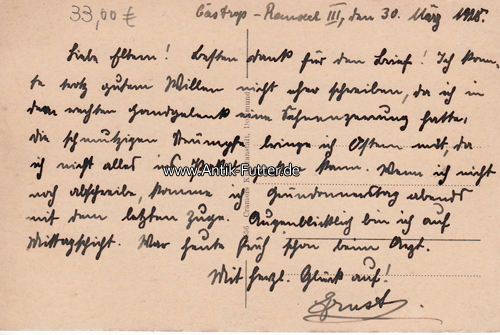 33,00 €
Castrop-Rauxel III, den 30. März 1928.
Liebe Eltern! Besten Dank für den Brief! Ich konn-
te trotz gutem Willen nicht eher schreiben, da ich in
dem rechten Handgelenk eine Sehnenzerrung hatte,
die schmutzigen Strümpfe bringe ich Ostern mit, da
ich nicht alles ins kann. Wenn ich nicht
www.Antik-Futter.de
noch abschreibe, komme ich Gründonnerstag abends
mit dem letzten Zuge. Augenblicklich bin ich auf
Mittagschicht. War heute früh schon beim Arzt.
Mit herzl. Glück auf!
Ernst.